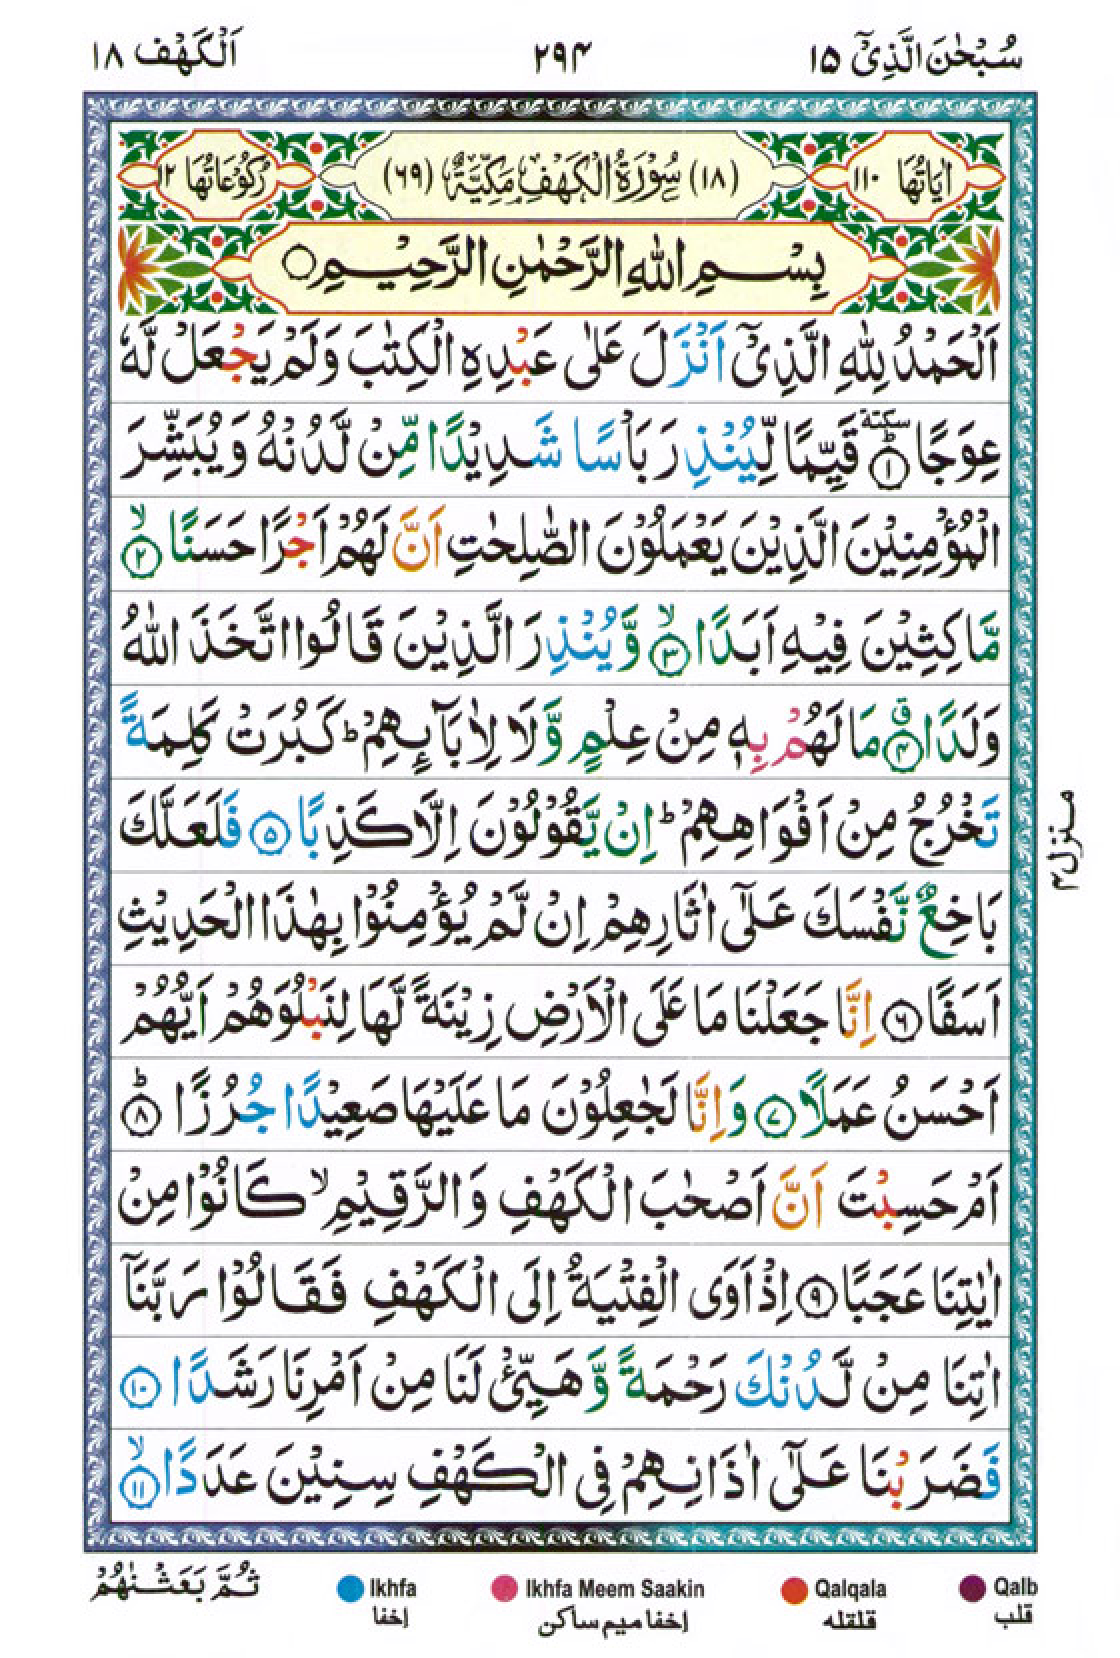 سُبْحٰنَ الَّذِیْۤ ۱۵ ۲۹۴ اَلْكَهْف ۱۸
اٰیَاتُهَا ۱۱۰ (۱۸) سُوْرَةُ الْكَهْفِ مَكِّیَّةٌ (۶۹) رُكُوْعَاتُهَا ۱۲
بِسْمِ اللّٰهِ الرَّحْمٰنِ الرَّحِیْمِ۝
اَلْحَمْدُ لِلّٰهِ الَّذِیْۤ اَنْزَلَ عَلٰی عَبْدِهِ الْكِتٰبَ وَلَمْ یَجْعَلْ لَّهٗ
عِوَجًا ؕ۝۱ سكتة قَیِّمًا لِّیُنْذِرَ بَاْسًا شَدِیْدًا مِّنْ لَّدُنْهُ وَیُبَشِّرَ
الْمُؤْمِنِیْنَ الَّذِیْنَ یَعْمَلُوْنَ الصّٰلِحٰتِ اَنَّ لَهُمْ اَجْرًا حَسَنًا ۙ۝۲
مَّاكِثِیْنَ فِیْهِ اَبَدًا ۙ۝۳ وَّیُنْذِرَ الَّذِیْنَ قَالُوا اتَّخَذَ اللّٰهُ
وَلَدًا ۗ۝۴ مَا لَهُمْ بِهٖ مِنْ عِلْمٍ وَّلَا لِاٰبَآىِٕهِمْ ؕ كَبُرَتْ كَلِمَةً
تَخْرُجُ مِنْ اَفْوَاهِهِمْ ؕ اِنْ یَّقُوْلُوْنَ اِلَّا كَذِبًا ۝۵ فَلَعَلَّكَ
بَاخِعٌ نَّفْسَكَ عَلٰۤی اٰثَارِهِمْ اِنْ لَّمْ یُؤْمِنُوْا بِهٰذَا الْحَدِیْثِ
اَسَفًا ۝۶ اِنَّا جَعَلْنَا مَا عَلَی الْاَرْضِ زِیْنَةً لَّهَا لِنَبْلُوَهُمْ اَیُّهُمْ
اَحْسَنُ عَمَلًا ۝۷ وَاِنَّا لَجٰعِلُوْنَ مَا عَلَیْهَا صَعِیْدًا جُرُزًا ؕ۝۸
اَمْ حَسِبْتَ اَنَّ اَصْحٰبَ الْكَهْفِ وَالرَّقِیْمِ ۙ كَانُوْا مِنْ
اٰیٰتِنَا عَجَبًا ۝۹ اِذْ اَوَی الْفِتْیَةُ اِلَی الْكَهْفِ فَقَالُوْا رَبَّنَاۤ
اٰتِنَا مِنْ لَّدُنْكَ رَحْمَةً وَّهَیِّئْ لَنَا مِنْ اَمْرِنَا رَشَدًا ۝۱۰
فَضَرَبْنَا عَلٰۤی اٰذَانِهِمْ فِی الْكَهْفِ سِنِیْنَ عَدَدًا ۙ۝۱۱
منزل ۴
ثُمَّ بَعَثْنٰهُمْ
Ikhfa Ikhfa Meem Saakin Qalqala Qalb
إخفا إخفا ميم ساكن قلقله قلب